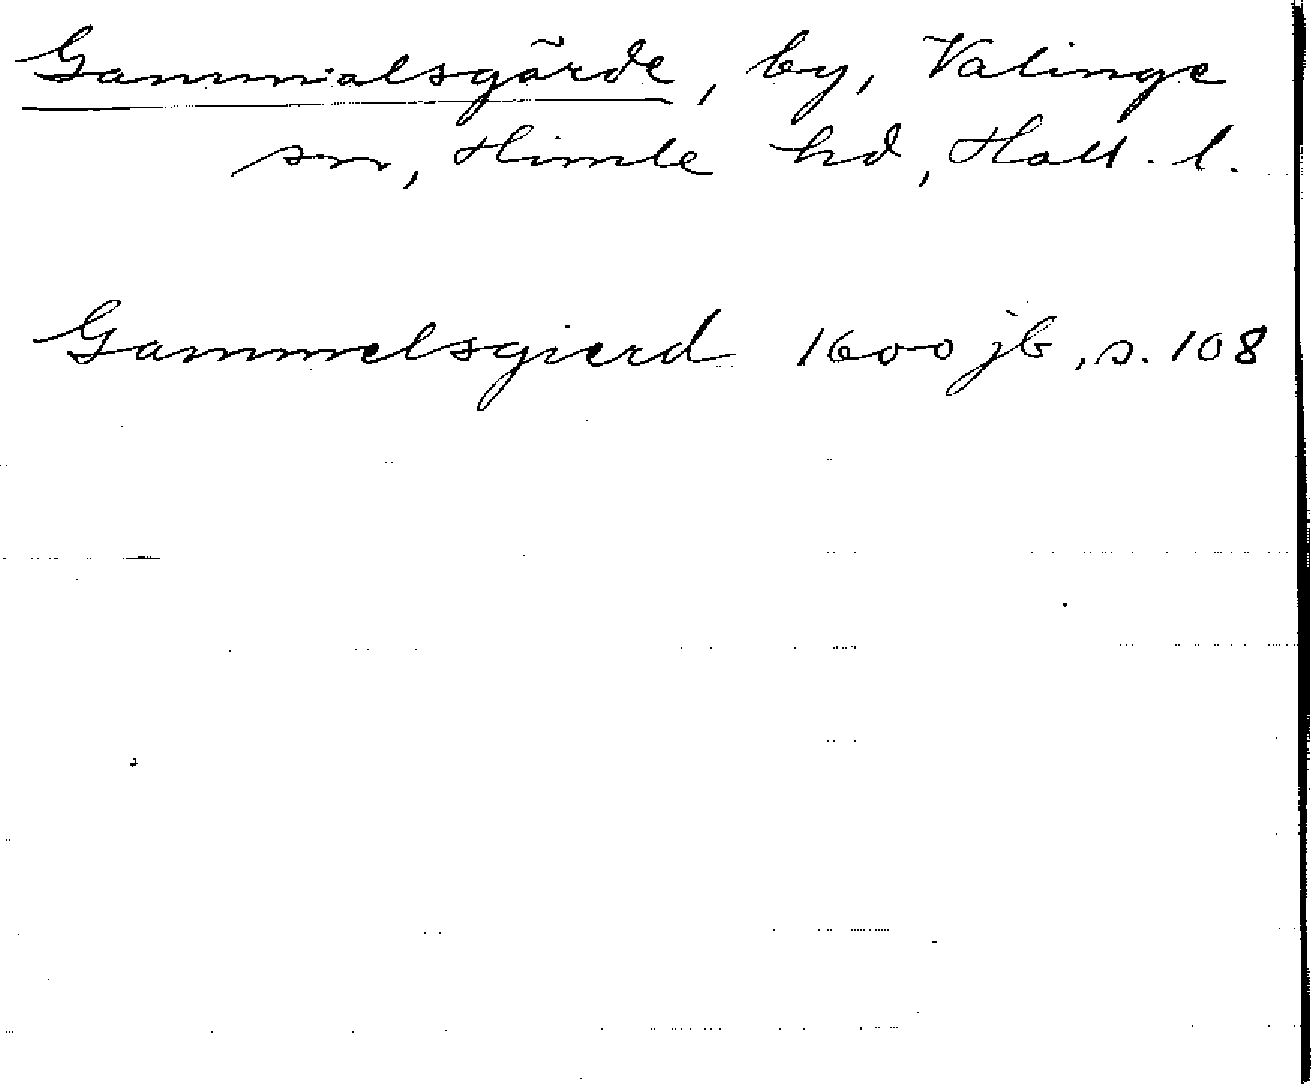 Gammalsgärde, by, Valinge
sn, Himle hd, Hall. l.
Gammelsgierd 1600 jb, s. 108